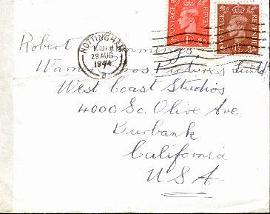 NOTTINGHAM
29 AUG
1944
Robert
Pictures
West Coast Studios
4000 So. Olive Ave.
Burbank
California
U.S.A